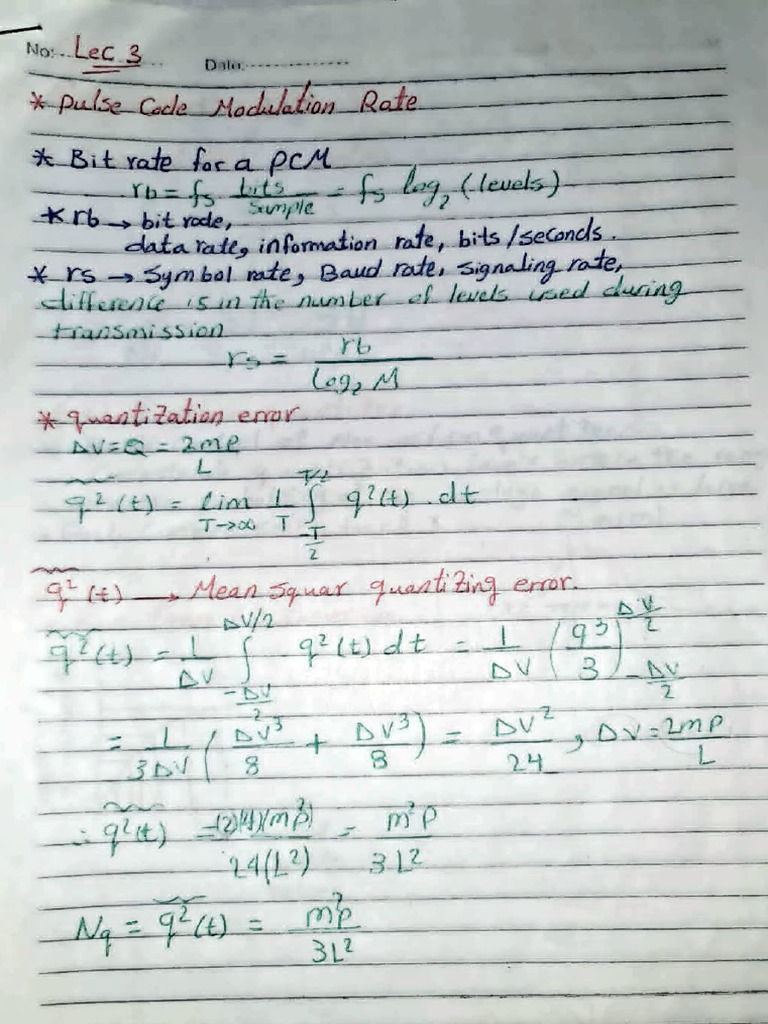 No:.. Lec 3 Date:................
* Pulse Code Modulation Rate
* Bit rate for a PCM
rb = fs bits/sample = fs log₂ (levels)
* rb → bit rode,
data rate, information rate, bits/seconds.
* rs → Symbol rate, Baud rate, signaling rate,
difference is in the number of levels used during
transmission
rs = rb / log₂ M
* quantization error
ΔV = Q = 2mp / L
q²(t) = lim T→∞ 1/T ∫ T/2 -T/2 q²(t) . dt
q²(t) → Mean Squar quantizing error.
q²(t) = 1/ΔV ∫ ΔV/2 -ΔV/2 q²(t) dt = 1/ΔV (q³/3) ΔV/2 -ΔV/2
= 1/3ΔV (ΔV³/8 + ΔV³/8) = ΔV²/24 , ΔV = 2mp/L
∴ q²(t) = (2)(4)(m²p) / 24(L²) = m²p / 3L²
Nq = q²(t) = m²p / 3L²